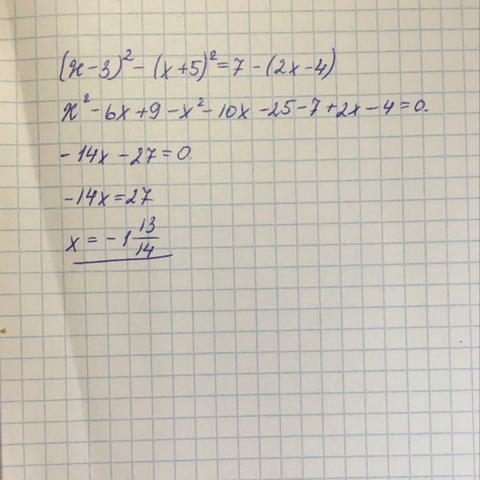 (x-3)² - (x+5)² = 7 - (2x-4)
x² - 6x + 9 - x² - 10x - 25 - 7 + 2x - 4 = 0.
- 14x - 27 = 0
- 14x = 27
x = - 1 13/14